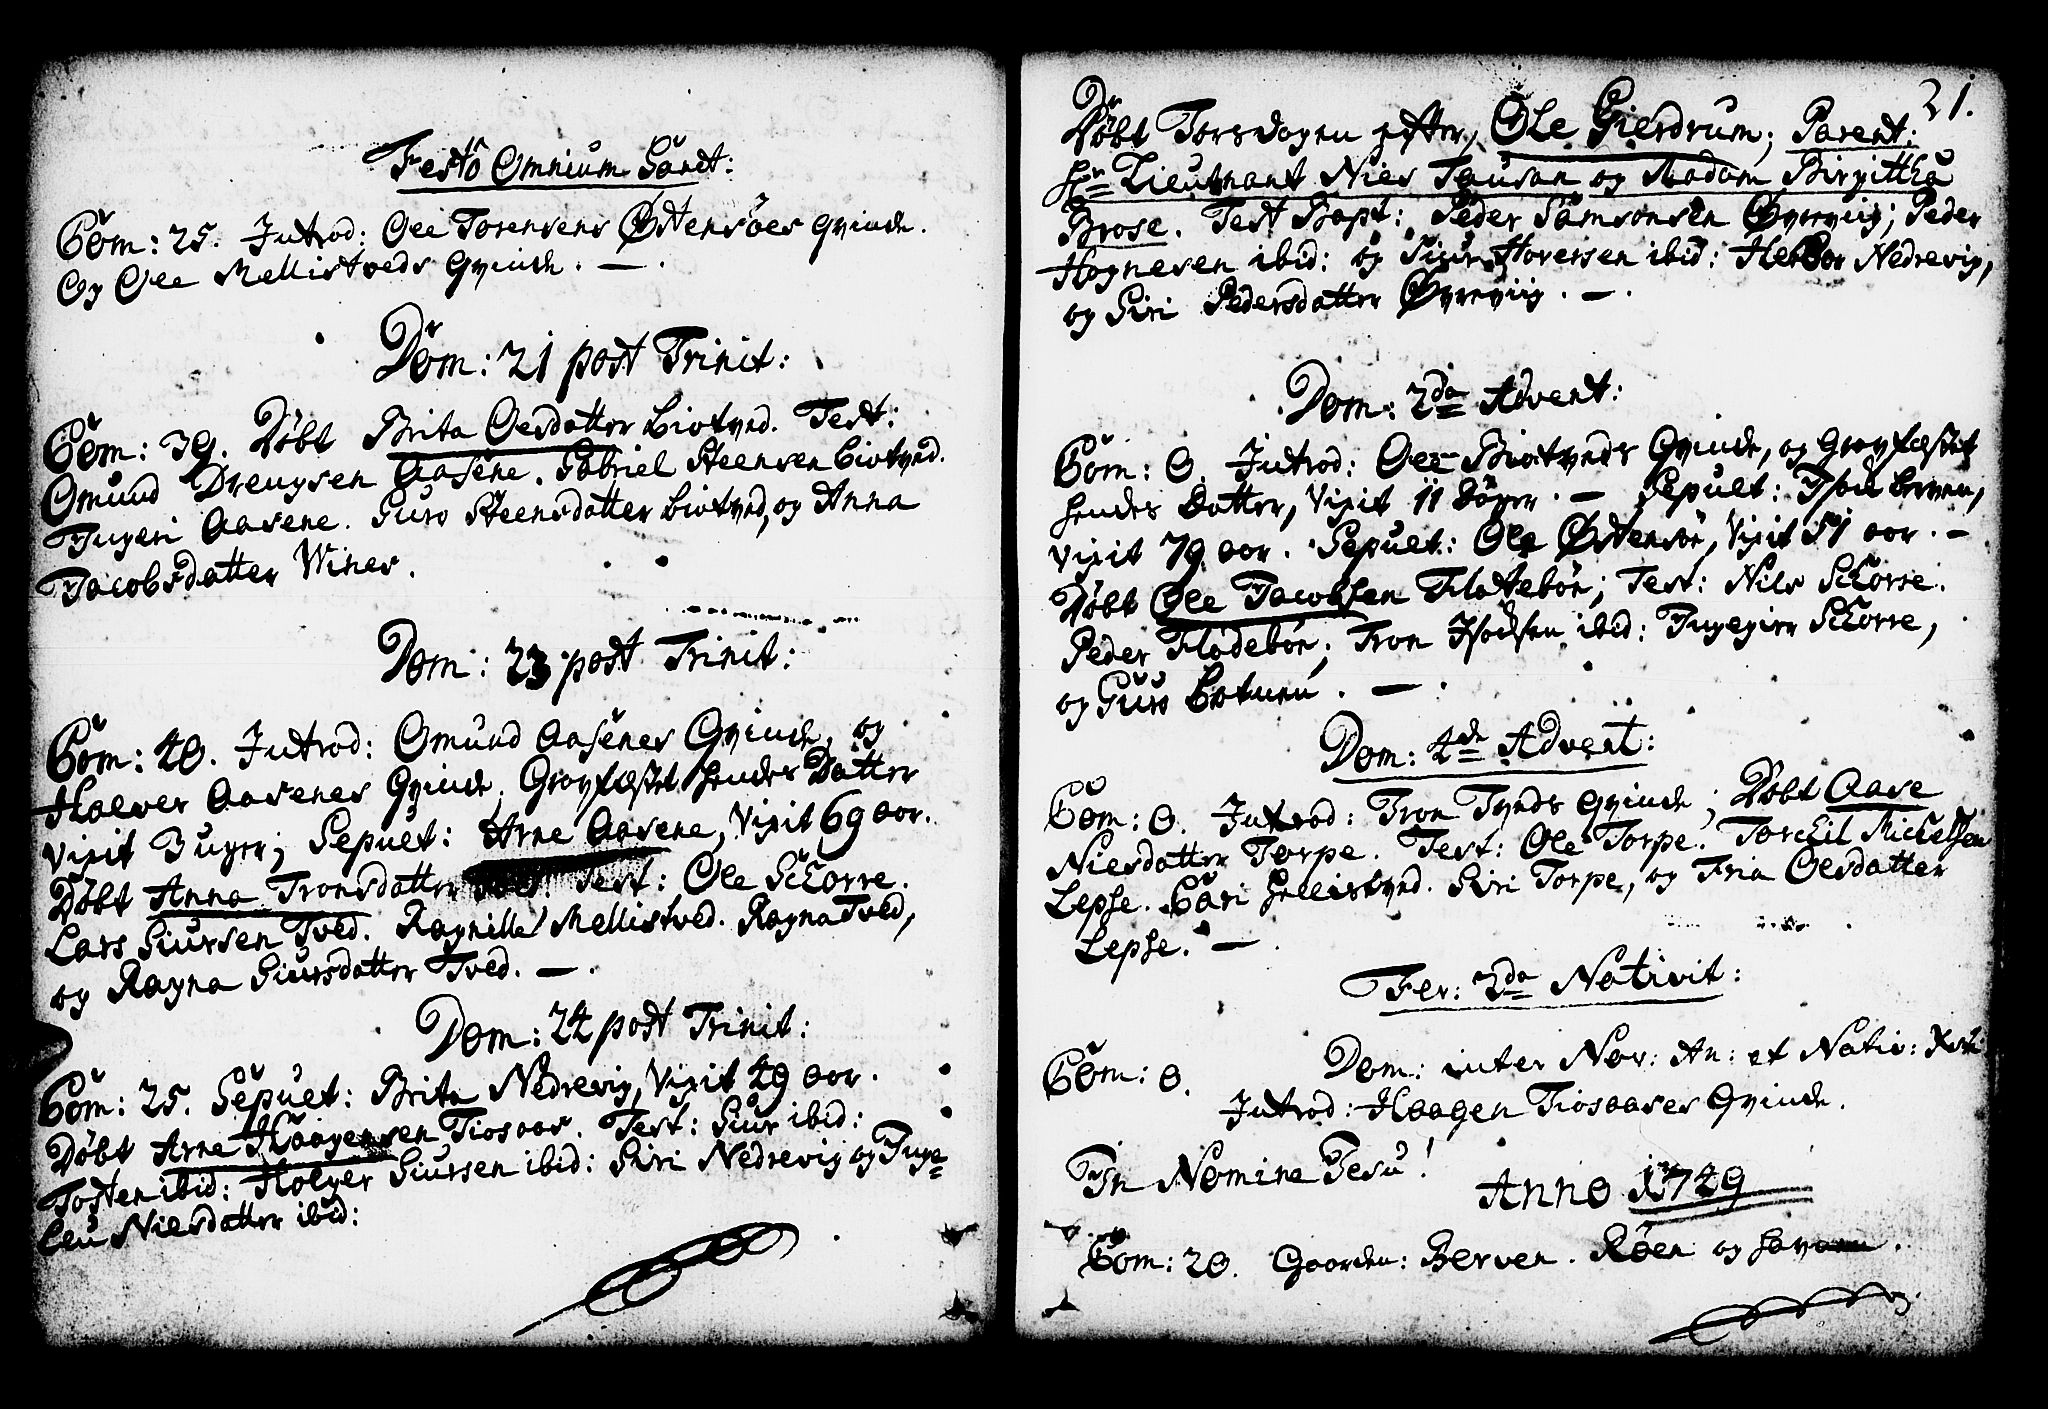 Festo Omnium Sanct:
Com: 25. Introd: Ole Torensens Østensöes Qvinde.
Og Ole Mellistveds Qvinde. —.
Dom: 21 post Trinit:
Com: 39. Döbt Brita Olsdatter Biotved. Test:
Omund Dreugsen Aasene. Gabriel Steensen Biotved.
Ingeri Aasene. Guro Steensdatter Biotved, og Anna
Jacobsdatter Wines.
Dom: 23 post Trinit:
Com: 40. Introd: Omund Aasenes Qvinde, og
Halvor Aasenes Qvinde, Gravfæstet hendes Datter
vixit 3 uger; Sepult: Arne Aasene, vixit 69 aar.
Döbt Anna Tronsdatter Test: Ole Skorre.
Lars Siursen Tved. Ragnilla Mellistved. Ragna Tved,
og Ragna Siursdatter Tved. —.
Dom: 24 post Trinit:
Com: 25. Sepult: Brita Nedrevig, vixit 49 aar.
Döbt Arne Haagensen Tiosaas. Test: Siur ibid:
Tosten ibid: Holger Siursen ibid: Siri Nedrevig og Inge-
Niesdatter ibid:
21.
Döbt Torsdagen efter, Ole Gierdrum; Parent:
Hr Lieutnant Niels Tausan og Madam Birgittha
Brose. Test Bapt: Peder Samsonsen Øvreviig; Peder
Hognesen ibid: og Siur Haversen ibid: Nedrevig,
og Siri Pedersdatter Øvreviig. —.
Dom: 2da Advent:
Com: 0. Introd: Ole Biotveds Qvinde, og Gravfæstet
hendes Datter, vixit 11 Döger. — Sepult: Berven,
vixit 79 aar. Sepult: Ole Østensöe, vixit 51 aar. —
Döbt Ole Jacobsen Flotebön; Test: Nils Skorre.
Peder Flodebön; Tron ibid: Skorre,
og Guro Botunen. —.
Dom: 4de Advent:
Com: 0. Introd: Tron Tveds Qvinde; Döbt Aase
Niesdatter Torpe. Test: Ole Torpe. Torckil Michelsen
Lepse. Cari Hellistved. Siri Torpe, og Olsdatter
Lepse. —.
Fer: 2da Nativit:
Com: 0. Dom: inter Nov: An: et Nativ: Xsti
Introd: Haagen Tiosaases Qvinde.
In Nomine Jesu! Anno 1749
Com: 20. Gaarden: Berven. Röen og